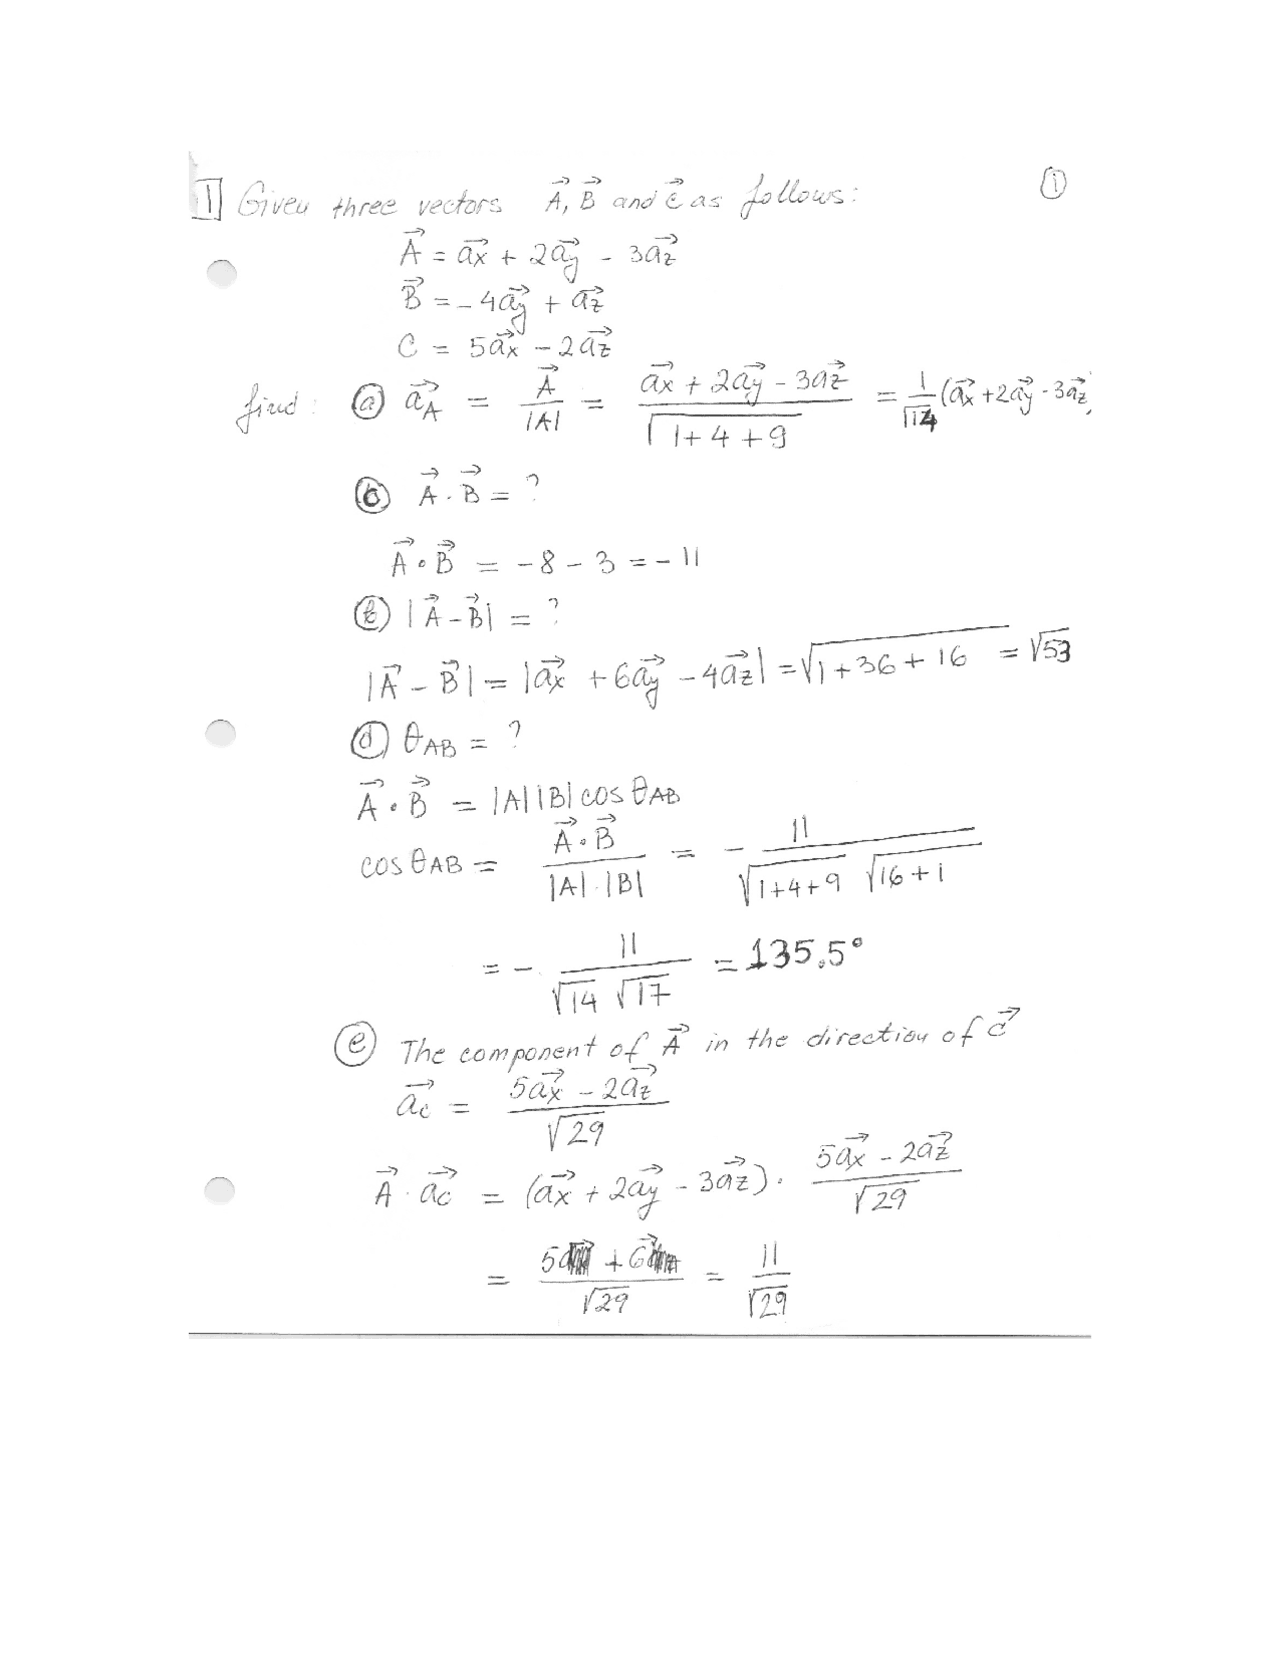 ①
1 Given three vectors A⃗, B⃗ and C⃗ as follows:
A⃗ = a⃗x + 2a⃗y - 3a⃗z
B⃗ = - 4a⃗y + a⃗z
C = 5a⃗x - 2a⃗z
find: (a) a⃗A = A⃗/|A| = (a⃗x + 2a⃗y - 3a⃗z)/√(1+4+9) = 1/√14 (a⃗x + 2a⃗y - 3a⃗z)
A⃗ . B⃗ = ?
A⃗ • B⃗ = -8 - 3 = - 11
|A⃗ - B⃗| = ?
|A⃗ - B⃗| = |a⃗x + 6a⃗y - 4a⃗z| = √(1+36+16) = √53
(d) θAB = ?
A⃗ • B⃗ = |A| |B| cos θAB
cos θAB = A⃗•B⃗/|A|.|B| = - 11/(√(1+4+9) √(16+1))
= - 11/(√14 √17) = 135.5°
(e) The component of A⃗ in the direction of C⃗
a⃗c = (5a⃗x - 2a⃗z)/√29
A⃗ . a⃗c = (a⃗x + 2a⃗y - 3a⃗z) . (5a⃗x - 2a⃗z)/√29
= (5 + 6)/√29 = 11/√29